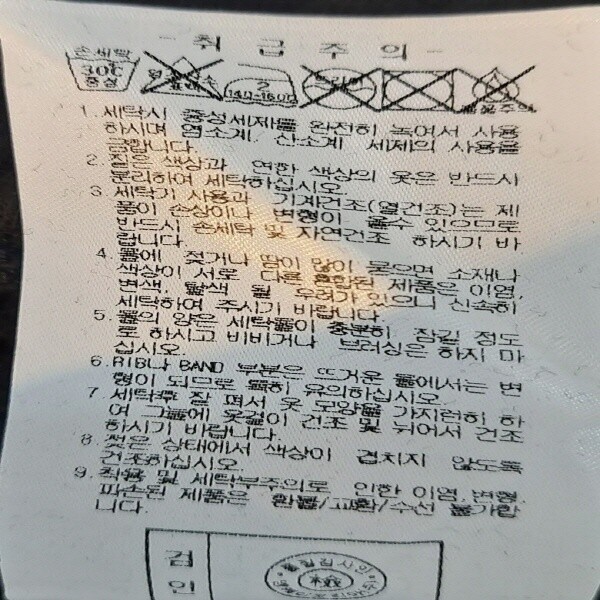 - 취 급 주 의 -
손세탁
30℃
중성
염소표백
2
140~160℃
드라이
1. 세탁시 중성세제를 완전히 녹여서 사용
하시며 염소계, 산소계 세제의 사용을
금합니다.
2. 짙은 색상과 연한 색상의 옷은 반드시
분리하여 세탁하십시오.
3. 세탁기 사용과 기계건조(열건조)는 제
품이 손상이나 변형이 올수 있으므로
반드시 손세탁 및 자연건조 하시기 바
랍니다.
4. 물에 젖거나 땀이 많이 묻으면 소재나
색상이 서로 다른 혼합된 제품은 이염,
변색, 탈색 될 우려가 있으니 신속히
세탁하여 주시기 바랍니다.
5. 물의 양은 세탁물이 충분히 잠길 정도
로 하시고 비비거나 브러싱은 하지 마
십시오.
6. RIB나 BAND 부분은 뜨거운 물에서는 변
형이 되므로 특히 유의하십시오.
7. 세탁후 잘 펴서 옷 모양을 가지런히 하
여 그늘에 옷걸이 건조 및 뉘어서 건조
하시기 바랍니다.
8. 젖은 상태에서 색상이 겹치지 않도록
건조하십시오.
9. 착용 및 세탁부주의로 인한 이염,변형,
파손된 제품은 환불/교환/수선 불가합
니다.
검
인
품질검사인